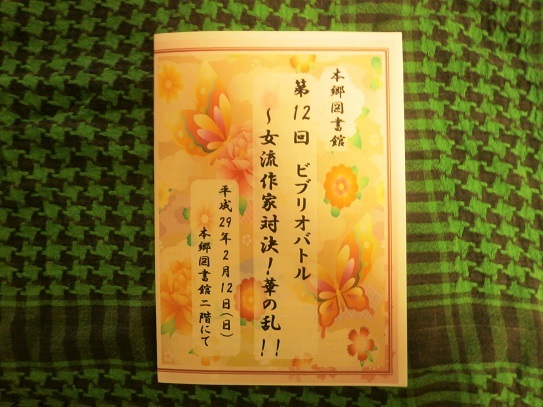 本郷図書館
第12回 ビブリオバトル
~女流作家対決!華の乱!!
平成29年2月12日(日)
本郷図書館二階にて